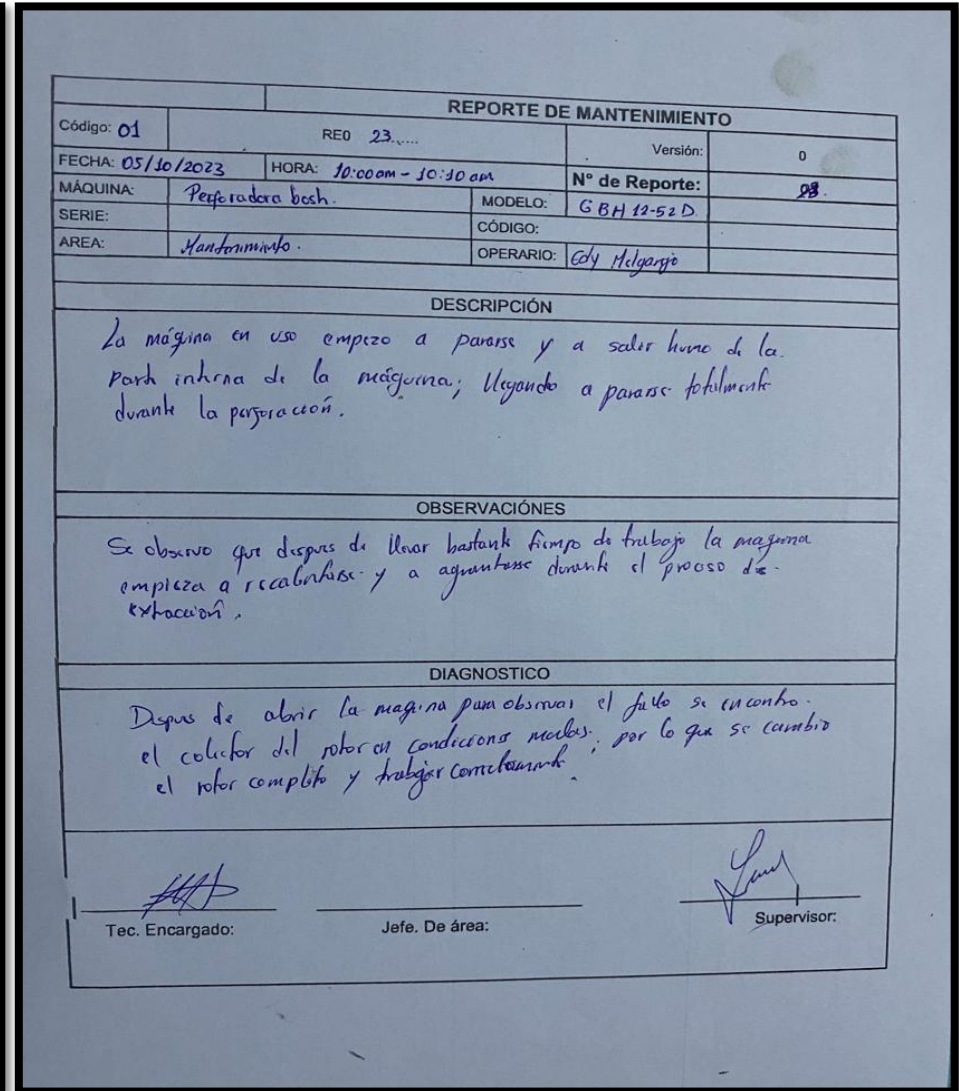 REPORTE DE MANTENIMIENTO
Código: 01 RE0 23...... Versión: 0
FECHA: 05/10/2023 HORA: 10:00am - 10:10am N° de Reporte:
MÁQUINA: Perforadora bosh. MODELO: GBH 12-52 D.
SERIE: CÓDIGO:
AREA: Mantenimiento. OPERARIO: Edy Melgarejo
DESCRIPCIÓN
La máquina en uso empezo a pararse y a salir humo de la.
parte interna de la máquina; llegando a pararse totalmente
durante la perforación.
OBSERVACIÓNES
Se observo que despues de llevar bastante tiempo de trabajo la maquina
empieza a recalentarse y a aguantarse durante el proceso de.
extracción.
DIAGNOSTICO
Despues de abrir la maquina para observar el fallo se encontro.
el colector del rotor en condiciones malas; por lo que se cambio
el rotor completo y trabajar correctamente.
Tec. Encargado: Jefe. De área: Supervisor: